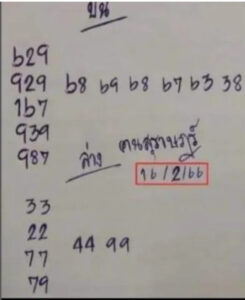 บน
629
929 68 69 68 67 63 38
167
939
987
ล่าง คนสุราษฎร์
16/2/66
33
22
77 44 99
79